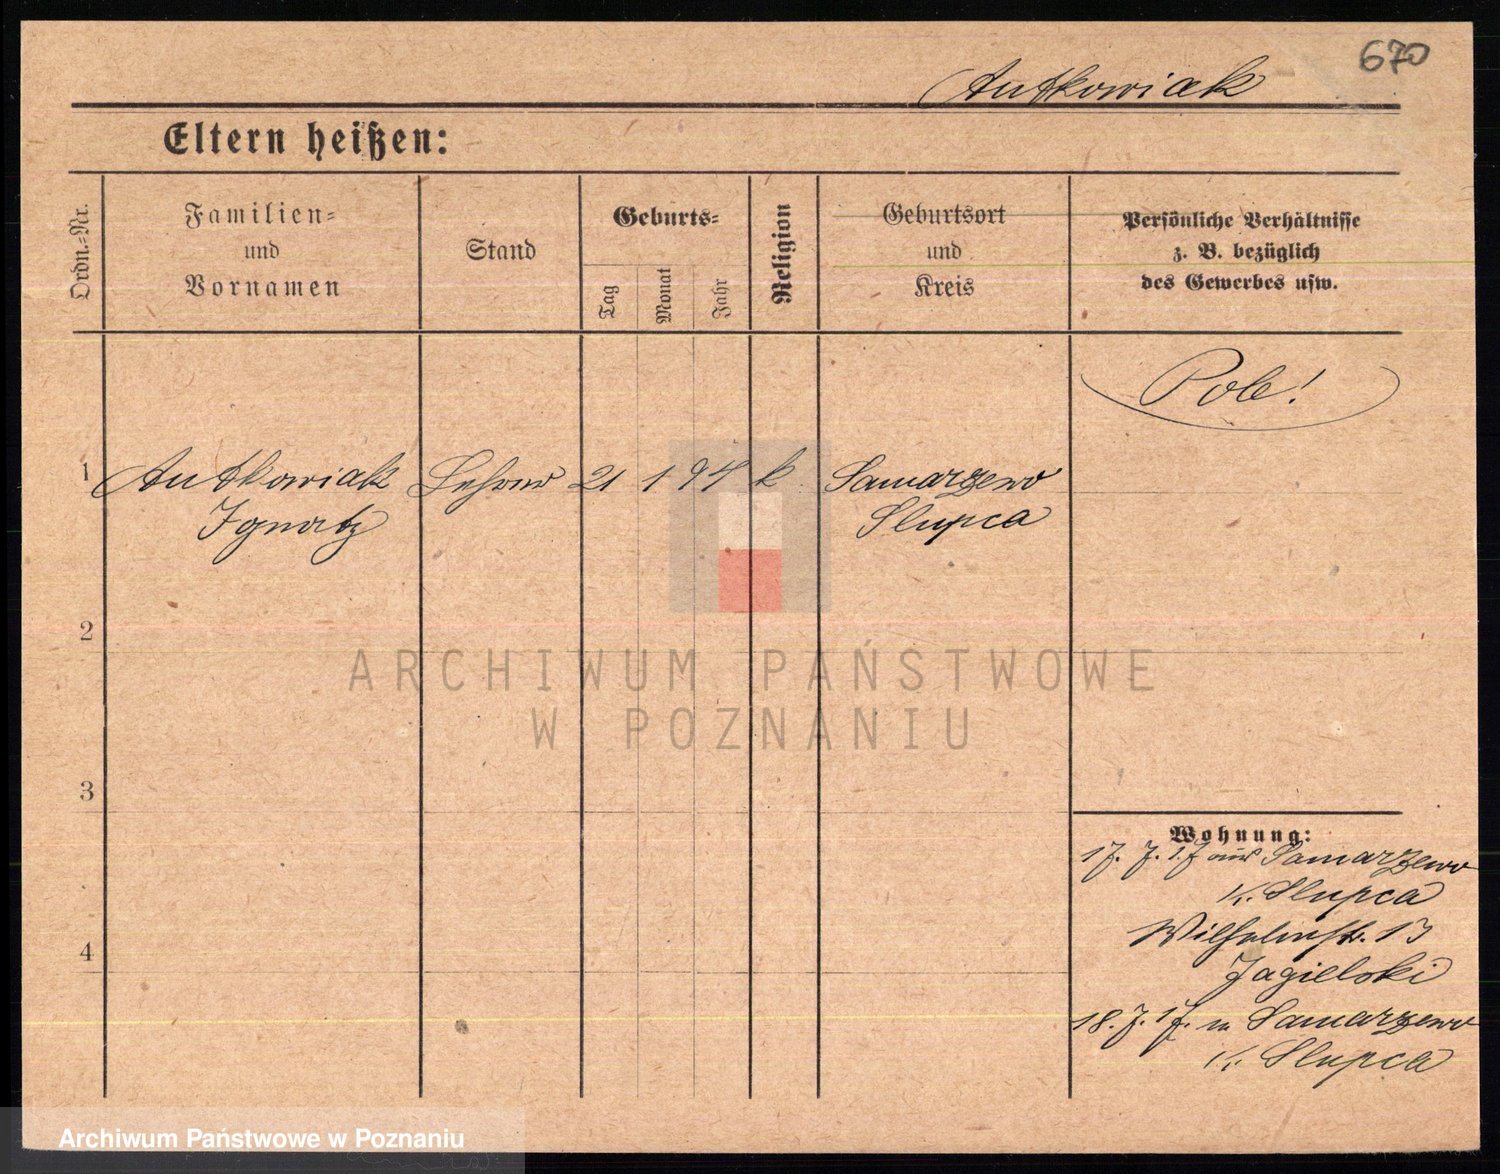 670
Antkowiak
Eltern heißen:
Ordn.-Nr.
Familien-
und
Vornamen
Stand
Geburts-
Tag
Monat
Jahr
Religion
Geburtsort
und
Kreis
Persönliche Verhältnisse
z. B. bezüglich
des Gewerbes usw.
Pole!
1 Antkowiak Lehrer 21 1 94 k. Samarzewo
Ignatz Slupca
2
ARCHIWUM PAŃSTWOWE
W POZNANIU
3
4
Wohnung:
17. 7. 17 aus Samarzewo
K. Slupca
Wilhelmstr. 13
Jagielski
18. 7. 17. n Samarzewo
K. Slupca
Archiwum Państwowe w Poznaniu